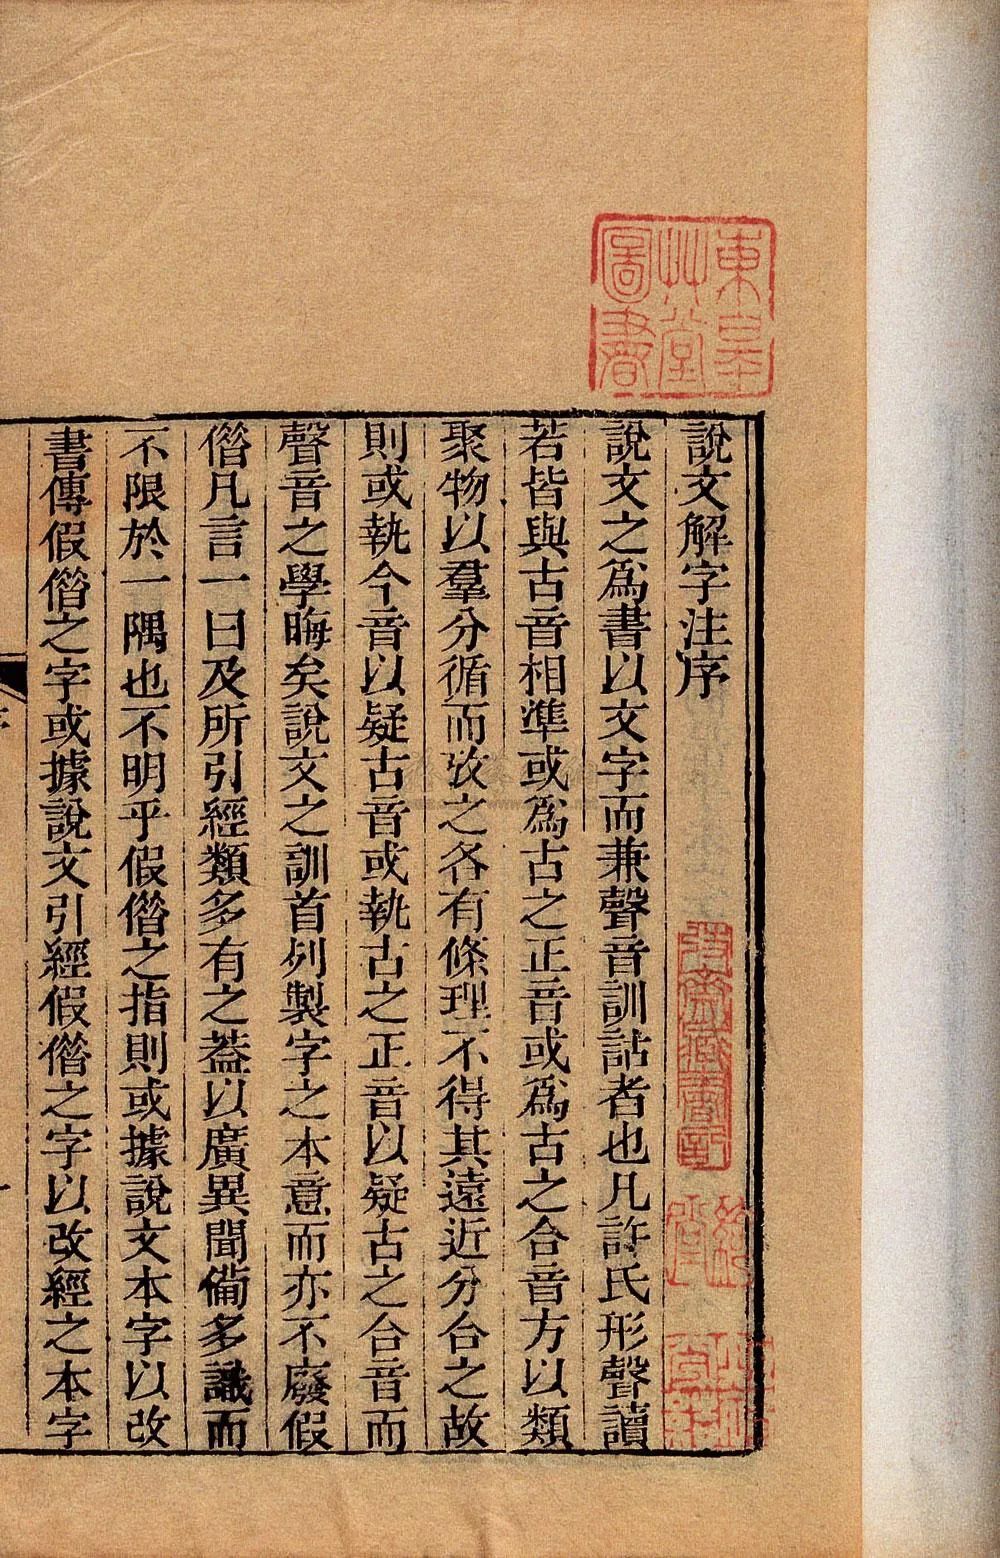 東皋
艸堂
圖書
說文解字注序
說文之爲書以文字而兼聲音訓詁者也凡許氏形聲讀
若皆與古音相準或爲古之正音或爲古之合音方以類
聚物以羣分循而攷之各有條理不得其遠近分合之故
則或執今音以疑古音或執古之正音以疑古之合音而
聲音之學晦矣說文之訓首列製字之本意而亦不廢假
借凡言一曰及所引經類多有之葢以廣異聞備多識而
不限於一隅也不明乎假借之指則或據說文本字以改
書傳假借之字或據說文引經假借之字以改經之本字
序